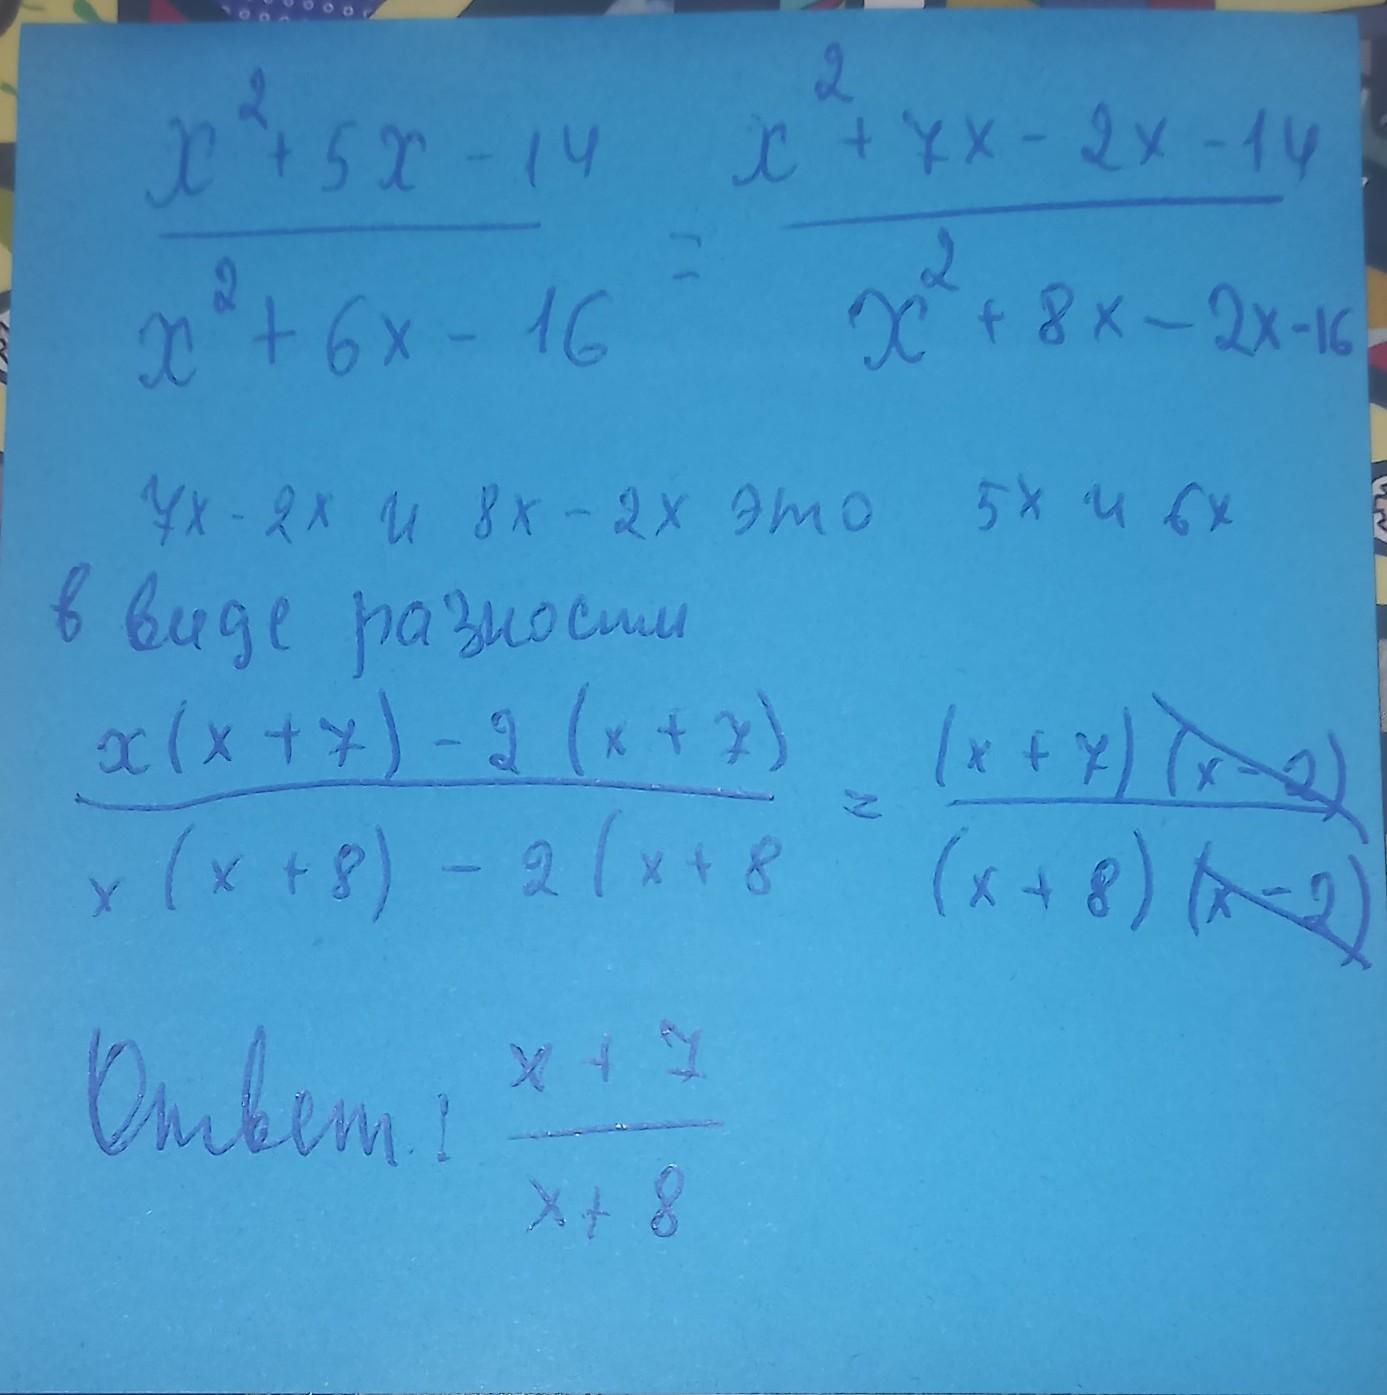 x² + 5x - 14 / x² + 6x - 16 = x² + 7x - 2x - 14 / x² + 8x - 2x - 16
7x - 2x и 8x - 2x это 5x и 6x
в виде разности
x(x + 7) - 2(x + 7) / x(x + 8) - 2(x + 8 = (x + 7)(x - 2) / (x + 8)(x - 2)
Ответ: x + 7 / x + 8